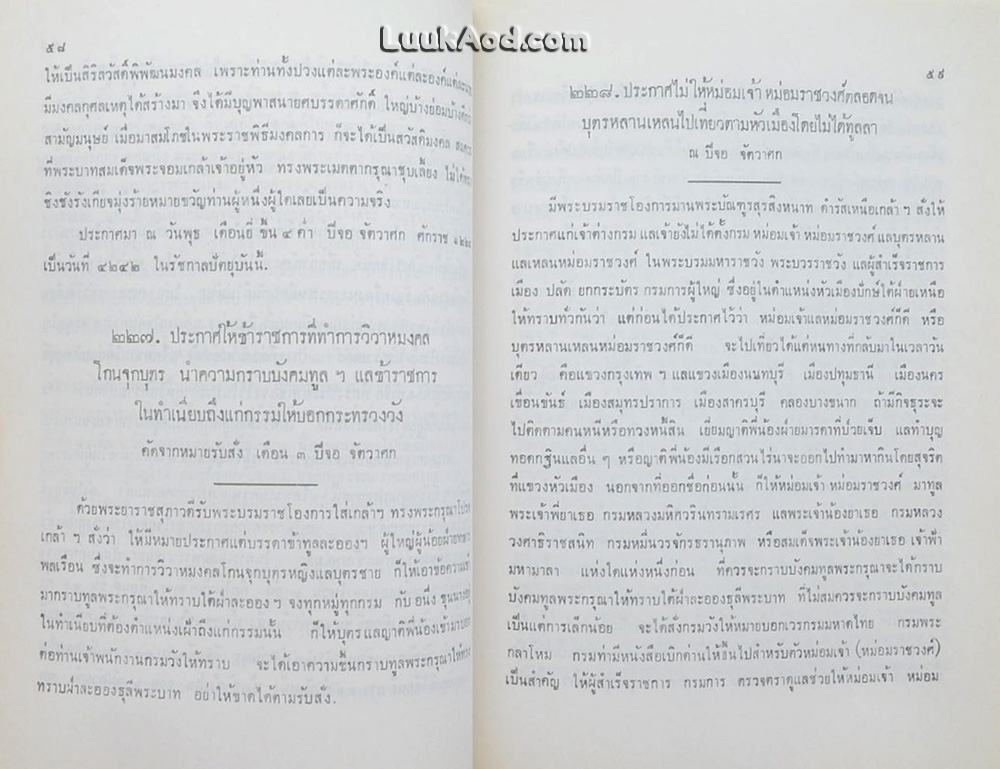 LuukAod.com
๕๘
ให้เป็นสิริสวัสดิ์พิพัฒนมงคล เพราะท่านทั้งปวงแต่ละพระองค์แต่ละองค์แต่ละ
มีมงคลกุศลเหตุได้สร้างมา จึงได้มีบุญพาสนายศบรรดาศักดิ์ ใหญ่บ้างย่อมบ้าง
สามัญมนุษย์ เมื่อมาสมโภชในพระราชพิธีมงคลการ ก็จะได้เป็นสวัสดิมงคล
ที่พระบาทสมเด็จพระจอมเกล้าเจ้าอยู่หัว ทรงพระเมตตากรุณาชุบเลี้ยง
ชิงชังรังเกียจมุ่งร้ายหมายขวญท่านผู้หนึ่งผู้ใดเลยเป็นความจริง
ประกาศมา ณ วันพุธ เดือนยี่ ขึ้น ๔ ค่ำ ปีจอ จัตวาศก ศักราช
เป็นวันที่ ๔๒๔๒ ในรัชกาลปัตยุบันนี้.
๒๒๗. ประกาศให้ข้าราชการที่ทำการวิวาหมงคล
โกนจุกบุตร นำความกราบบังคมทูล ฯ แลข้าราชการ
ในทำเนียบถึงแก่กรรมให้บอกกระทรวงวัง
คัดจากหมายรับสั่ง เดือน ๓ ปีจอ จัตวาศก
ด้วยพระยาราชสุภาวดีรับพระบรมราชโองการใส่เกล้าฯ ทรงพระกรุณา
เกล้า ฯ สั่งว่า ให้มีหมายประกาศแต่บรรดาข้าทูลละอองฯ ผู้ใหญ่ผู้น้อยฝ่าย
พลเรือน ซึ่งจะทำการวิวาหมงคลโกนจุกบุตรหญิงแลบุตรชาย ก็ให้เอาข้อความ
มากราบทูลพระกรุณาให้ทราบใต้ฝ่าละออง ฯ จงทุกหมู่ทุกกรม กับ อนึ่ง ขุนนาง
ในทำเนียบที่ต้องตำแหน่งเฝ้าถึงแก่กรรมนั้น ก็ให้บุตรแลญาติพี่น้องเข้ามา
ต่อท่านเจ้าพนักงานกรมวังให้ทราบ จะได้เอาความขึ้นกราบทูลพระกรุณาให้ทรง
ทราบฝ่าละอองธุลีพระบาท อย่าให้ขาดได้ตามรับสั่ง.
๕๙
๒๒๘. ประกาศไม่ให้หม่อมเจ้า หม่อมราชวงศ์ตลอดจน
บุตรหลานเหลนไปเที่ยวตามหัวเมืองโดยไม่ได้ทูลลา
ณ ปีจอ จัตวาศก
มีพระบรมราชโองการมานพระบัณฑูรสุรสิงหนาท ดำรัสเหนือเกล้า ฯ สั่งให้
ประกาศแก่เจ้าต่างกรม แลเจ้ายังไม่ได้ตั้งกรม หม่อมเจ้า หม่อมราชวงศ์ แลบุตรหลาน
แลเหลนหม่อมราชวงศ์ ในพระบรมมหาราชวัง พระบวรราชวัง แลผู้สำเร็จราชการ
เมือง ปลัด ยกกระบัตร กรมการผู้ใหญ่ ซึ่งอยู่ในตำแหน่งหัวเมืองปักษ์ใต้ฝ่ายเหนือ
ให้ทราบทั่วกันว่า แต่ก่อนได้ประกาศไว้ว่า หม่อมเจ้าแลหม่อมราชวงศ์ก็ดี หรือ
บุตรหลานเหลนหม่อมราชวงศ์ก็ดี จะไปเที่ยวได้แต่หนทางที่กลับมาในเวลาวัน
เดียว คือแขวงกรุงเทพ ฯ แลแขวงเมืองนนทบุรี เมืองปทุมธานี เมืองนคร
เขื่อนขันธ์ เมืองสมุทรปราการ เมืองสาครบุรี คลองบางขนาก ถ้ามีกิจธุระจะ
ไปติดตามคนหนีหรือทวงหนี้สิน เยี่ยมญาติพี่น้องฝ่ายมารดาที่ป่วยเจ็บ แลทำบุญ
ทอดกฐินแลอื่น ๆ หรือญาติพี่น้องมีเรือกสวนไร่นาจะออกไปทำมาหากินโดยสุจริต
ที่แขวงหัวเมือง นอกจากที่ออกชื่อก่อนนั้น ก็ให้หม่อมเจ้า หม่อมราชวงศ์ มาทูล
พระเจ้าพี่ยาเธอ กรมหลวงมหิศวรินทรามเรศร แลพระเจ้าน้องยาเธอ กรมหลวง
วงศาธิราชสนิท กรมหมื่นวรจักรธรานุภาพ หรือสมเด็จพระเจ้าน้องยาเธอ เจ้าฟ้า
มหามาลา แห่งใดแห่งหนึ่งก่อน ที่ควรจะกราบบังคมทูลพระกรุณาจะได้กราบ
บังคมทูลพระกรุณาให้ทราบใต้ฝ่าละอองธุลีพระบาท ที่ไม่สมควรจะกราบบังคมทูล
เป็นแต่การเล็กน้อย จะได้สั่งกรมวังให้หมายบอกเวรกรมมหาดไทย กรมพระ
กลาโหม กรมท่ามีหนังสือเบิกด่านให้ขึ้นไปสำหรับตัวหม่อมเจ้า (หม่อมราชวงศ์)
เป็นสำคัญ ให้ผู้สำเร็จราชการ กรมการ ตรวจตราดูแลช่วยให้หม่อมเจ้า หม่อม